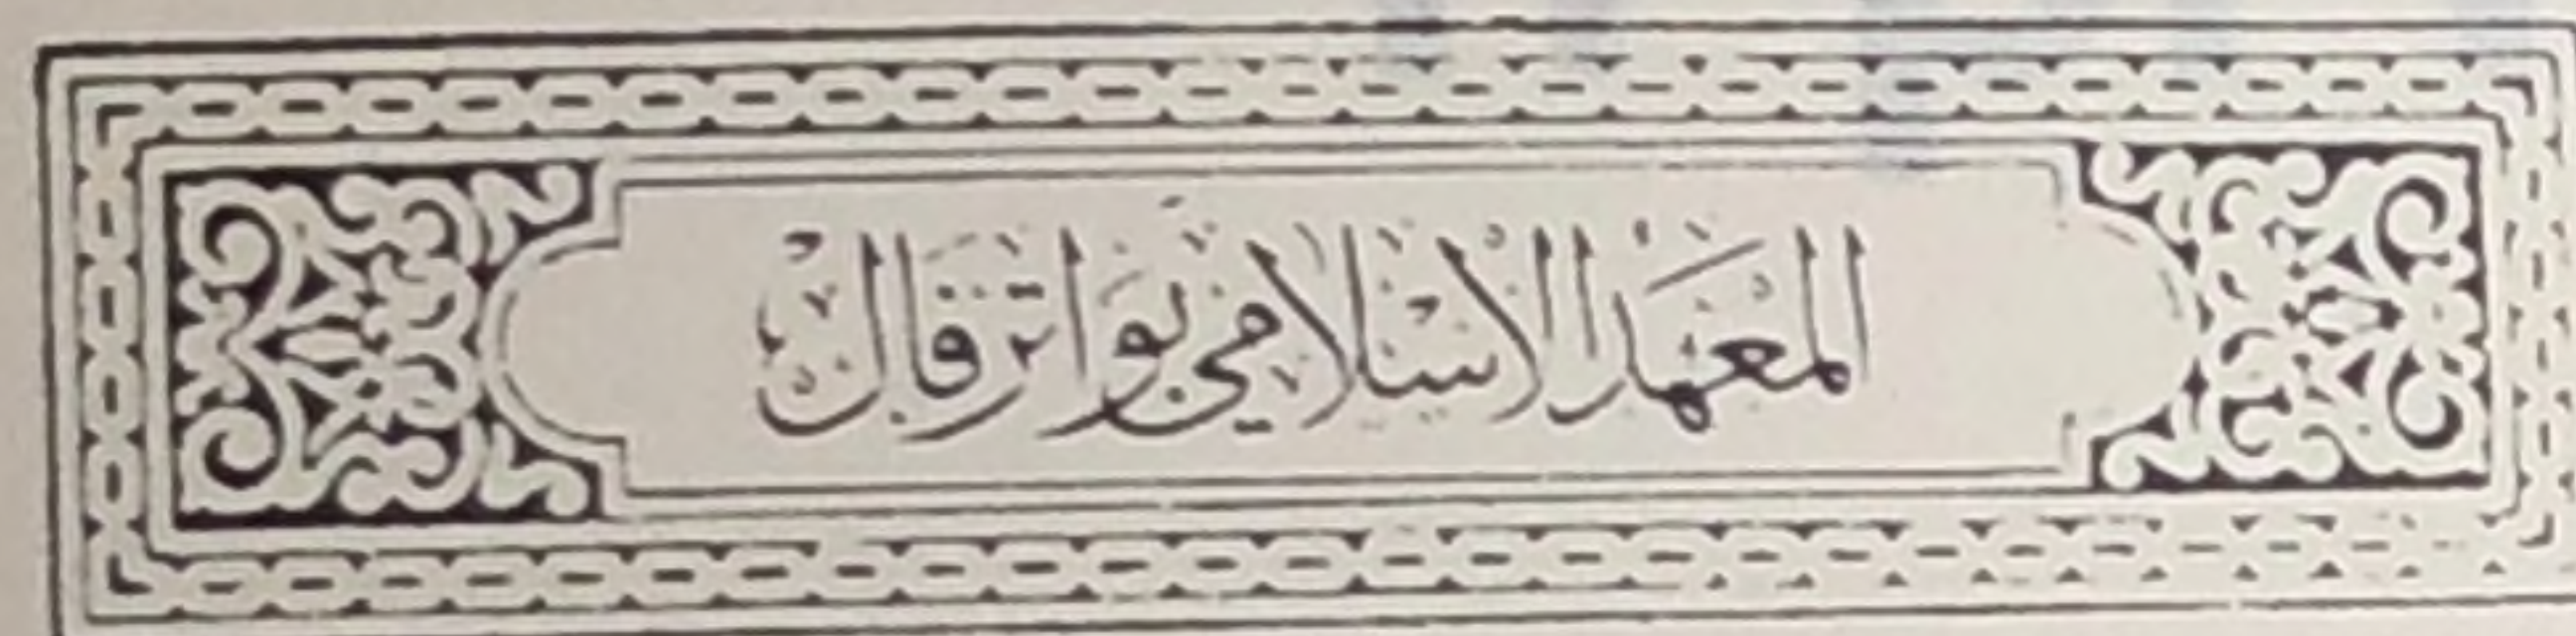 المعهد الاسلامي بواترقال